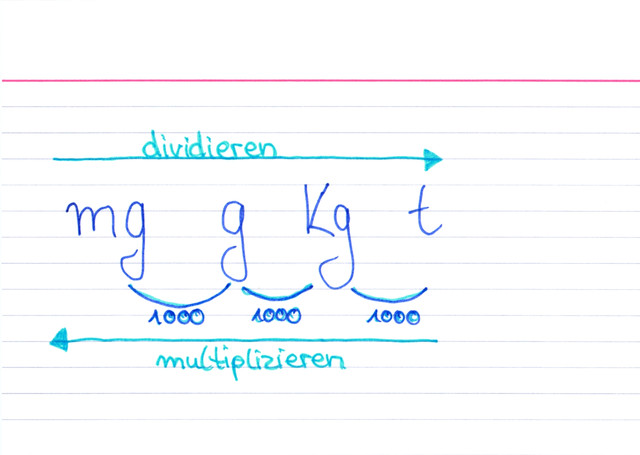 dividieren
mg g Kg t
1000 1000 1000
multiplizieren